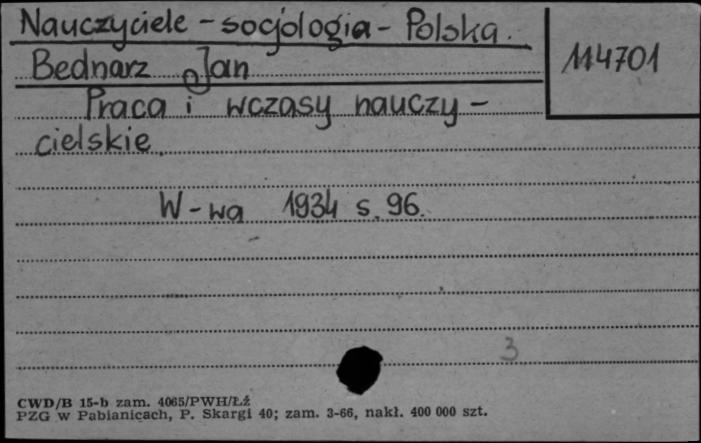 Nauczyciele - socjologia - Polska.
114701
Bednarz Jan
Praca i wczasy nauczy-
cielskie
W-wa 1934 s. 96.
3
CWD/B 15-b zam. 4065/PWH/Łź
PZG w Pabianicach, P. Skargi 40; zam. 3-66, nakł. 400 000 szt.